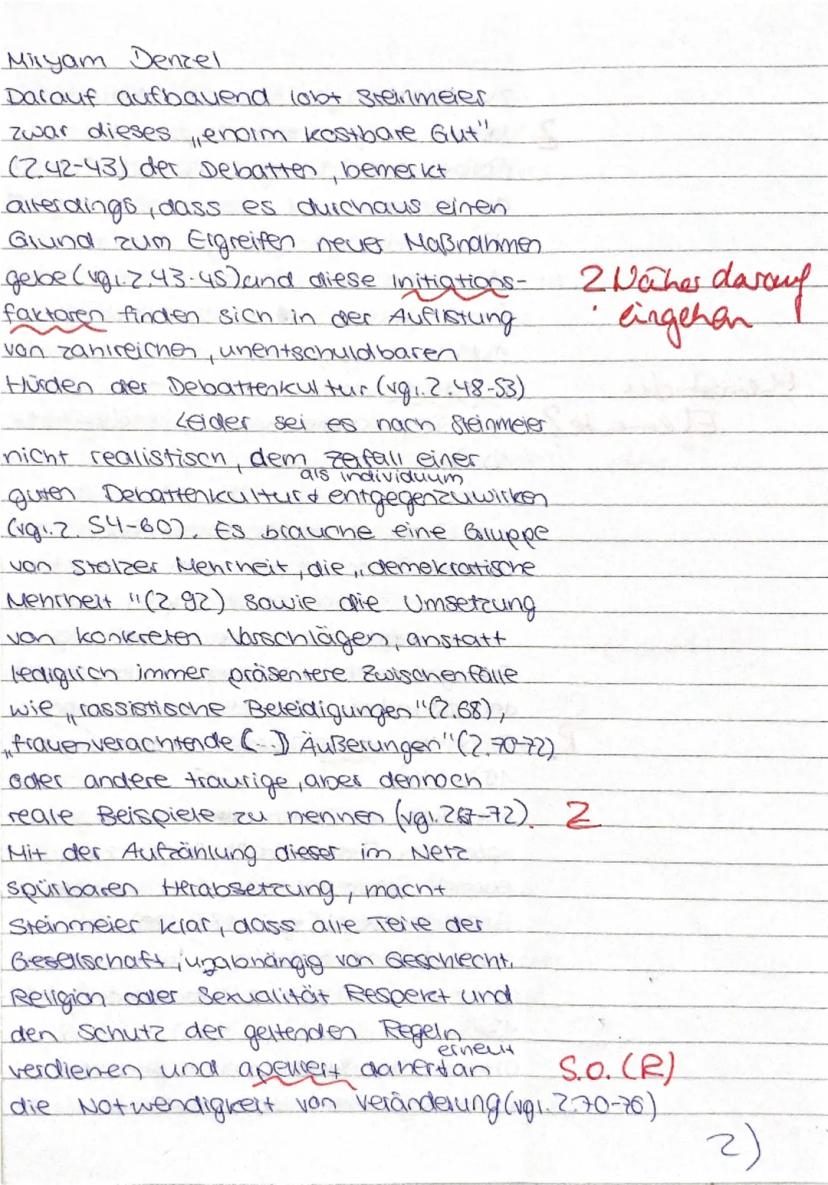 Miryam Denzel
Darauf aufbauend lobt Steinmeier
zwar dieses „enorm kostbare Gut"
(Z.42-43) der Debatten, bemerkt
allerdings, dass es durchaus einen
Grund zum Ergreifen neuer Maßnahmen
gebe (vgl. Z. 43-45) und diese Initiations- Z Näher darauf
faktoren finden sich in der Auflistung eingehen
von zahlreichen, unentschuldbaren
Hürden der Debattenkultur (vgl. Z. 48-53)
Leider sei es nach Steinmeier
nicht realistisch, dem Zerfall einer
als individuum
guten Debattenkultur entgegenzuwirken
(vgl. Z. 54-60). Es brauche eine Gruppe
von stolzer Mehrheit, die „demokratische
Mehrheit" (Z. 92) sowie die Umsetzung
von konkreten Vorschlägen, anstatt
lediglich immer präsentere Zwischenfälle
wie „rassistische Beleidigungen" (Z.68),
„frauenverachtende (...) Äußerungen" (Z.70-72)
oder andere traurige, aber dennoch
reale Beispiele zu nennen (vgl. Z67-72). Z
Mit der Aufzählung dieser im Netz
spürbaren Herabsetzung, macht
Steinmeier klar, dass alle Teile der
Gesellschaft, unabhängig von Geschlecht,
Religion oder Sexualität Respekt und
den Schutz der geltenden Regeln
erneut
verdienen und apelliert daher an S.O. (R)
die Notwendigkeit von Veränderung (vgl. Z.70-76)
2)